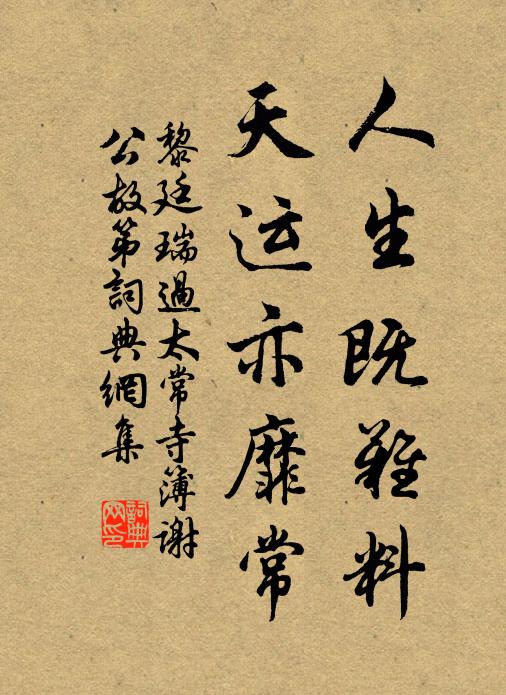 人生既难料
天运亦靡常
黎廷瑞過太常寺簿謝
公故第詞典網集
詞典网印